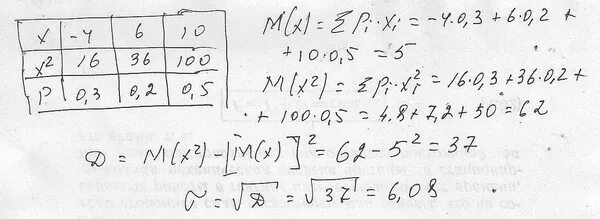 x -4 6 10
x² 16 36 100
P 0,3 0,2 0,5
M(x) = Σ Pᵢ·xᵢ = -4·0,3 + 6·0,2 +
+ 10·0,5 = 5
M(x²) = Σ Pᵢ·xᵢ² = 16·0,3 + 36·0,2 +
+ 100·0,5 = 4,8 + 7,2 + 50 = 62
D = M(x²) - [M(x)]² = 62 - 5² = 37
σ = √D = √37 = 6,08